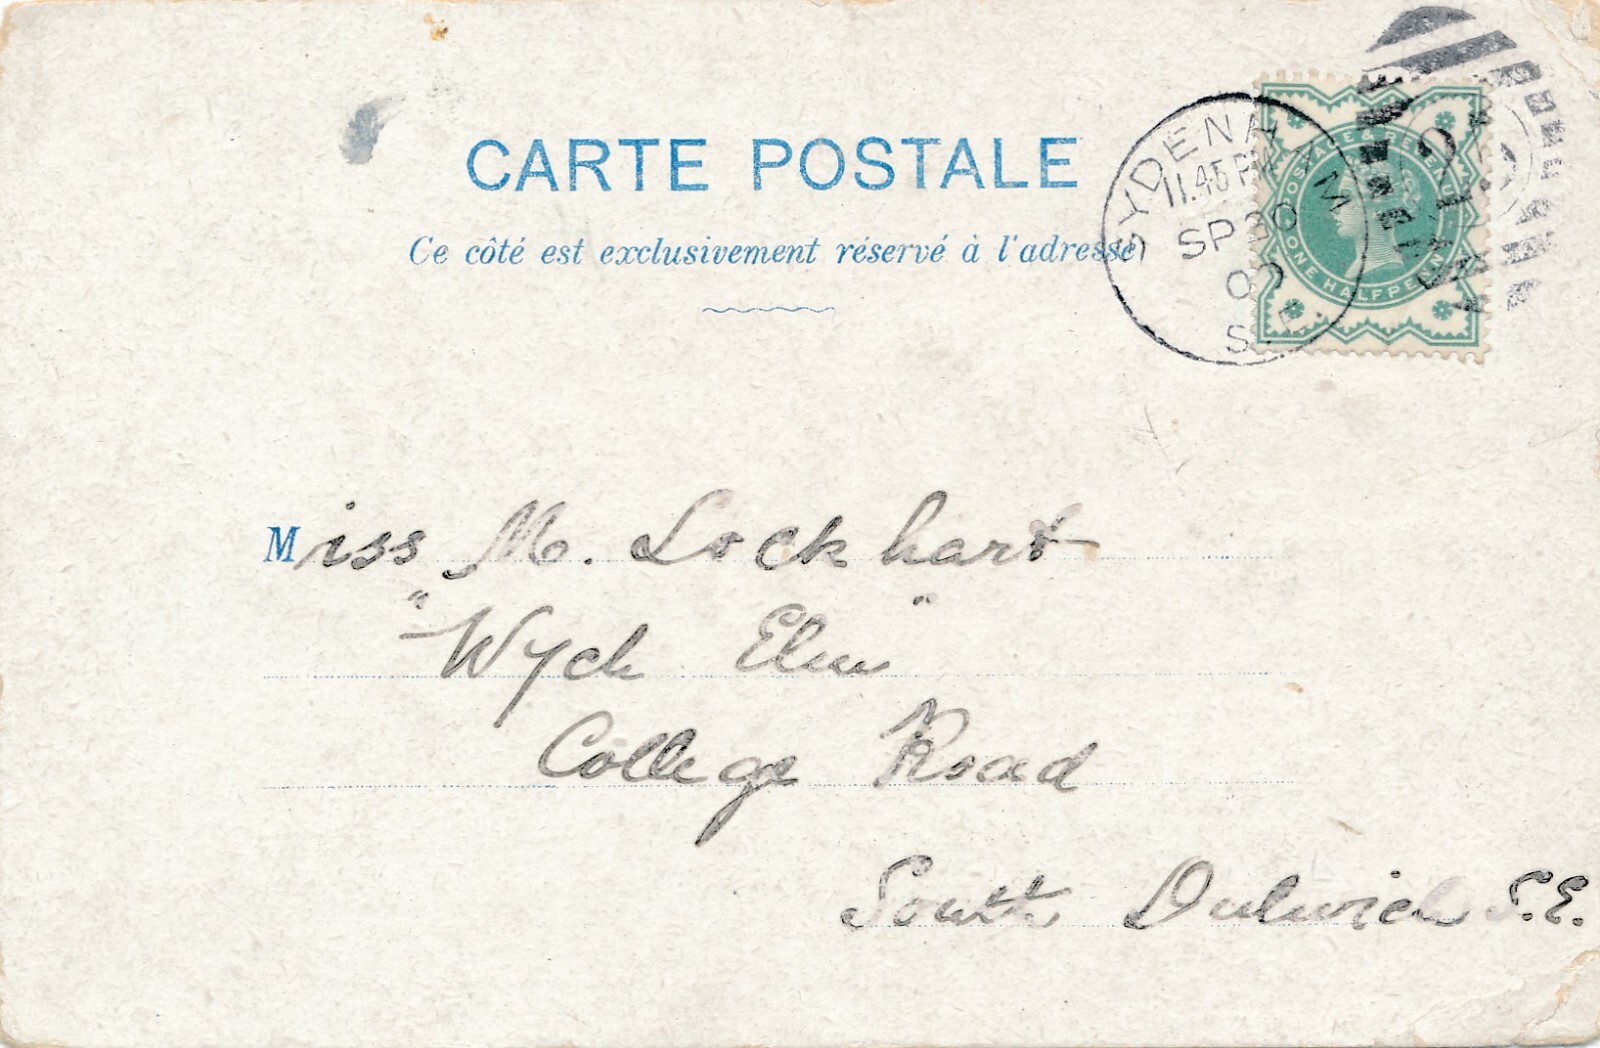 CARTE POSTALE
Ce côté est exclusivement réservé à l'adresse
SYDENHAM
11.45 PM
SP 30
S.E.
POSTAGE & REVENUE
ONE HALFPENNY
Miss M. Lockhart
"Wyck Elm"
College Road
South Dulwich S.E.